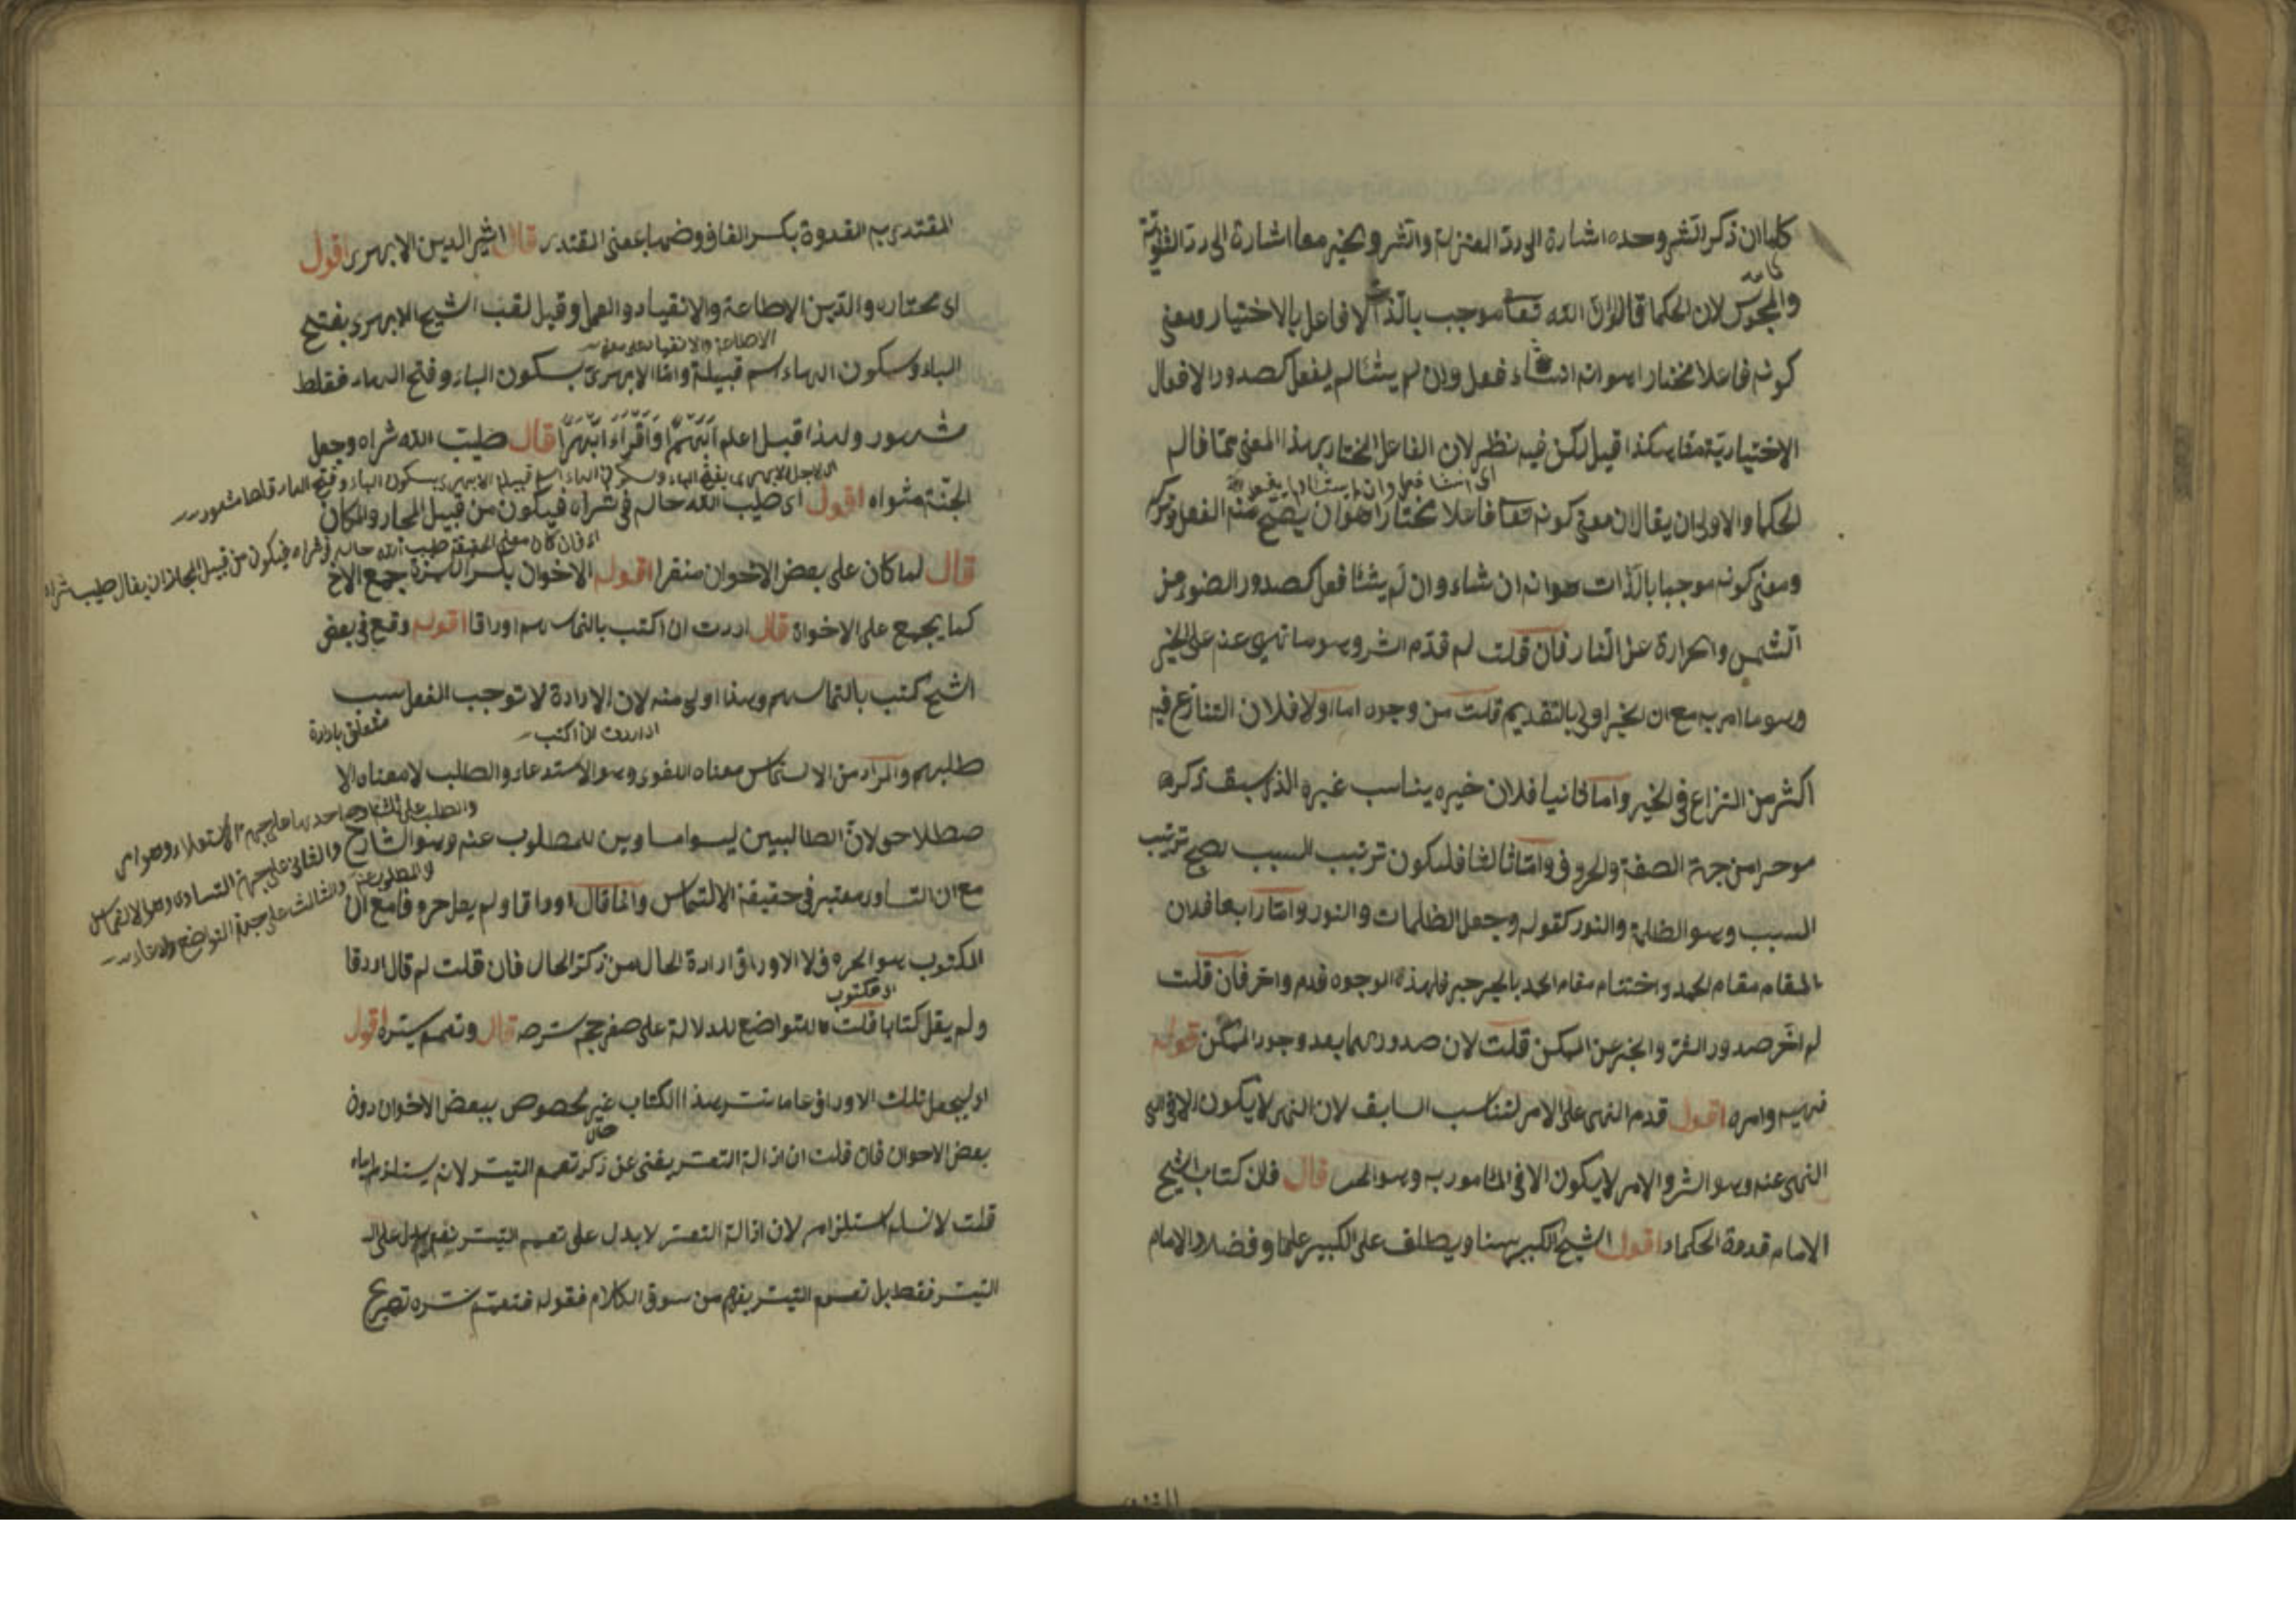 كما ان ذكر الشر وحده اشارة الى ردّ المعتزلة والشر والخير معا اشارة الى ردّ الثنويّة
والمجوس لان الحكما قالوا انّ الله تعا موجب بالذات لا فاعل بالاختيار ومعنى
كونه فاعلا مختارا هو انه ان شاء فعل وان لم يشأ لم يفعل كصدور الافعال
الاختياريّة منّا هكذا قيل لكن فيه نظر لان الفاعل المختار بهذا المعنى ممّا قال به
اى ان شا فعل وان لم يشأ لم يفعل
الحكما والاولى ان يقال ان معنى كونه تعا فاعلا مختارا هو ان يصحّ منه الفعل وتركه
ومعنى كونه موجبا بالذات هو انه ان شاء وان لم يشئا فعل كصدور الضوء من
الشمس والحرارة عن النار فان قلت لم قدّم الشر وهو ما نهى عنه على الخير
وهو ما امر به مع ان الخير اولى بالتقديم قلت من وجوه اما اولا فلان التنازع فيه
اكثر من النزاع في الخير واما ثانيا فلان خيره يناسب غيره الذى سبق ذكره
موخرا من جهة الصفة والحروف وامّا ثالثا فليكون ترتيب المسبب يصح ترتيب
السبب وهو الظلمة والنور كقوله وجعل الظلمات والنور وامّا رابعا فلان
المقام مقام الحمد واختتام مقام الحمد بالخير خير فلهذه الوجوه قدم واخر فان قلت
لم اخّر صدور الشرّ والخير عن الممكن قلت لان صدورهما بعد وجود الممكن قوله
نهيه وامره اقول قدم النهى على الامر لتناسب السابق لان النهى لا يكون الا في
المنهى عنه وهو الشر والامر لا يكون الا في المأمور به وهو الخير قال فان كتاب الشيخ
الامام قدوة الحكماء اقول الشيخ الكبير سنا ويطلق على الكبير علما وفضلا والامام
المقتدى به القدوة بكسر القاف وضمها بمعنى المقتدى قال اثير الدين الابهرى اقول
اى مختاره والدّين الاطاعة والانقياد والعمل وقيل لقب الشيخ الابهرى بفتح
الاطاعة والانقياد
الباء وسكون الهاء اسم قبيلة وامّا الابهرىّ بسكون الباء وفتح الهاء فغلط
مشهور ولهذا قيل اعلم قال طيّب الله ثراه وجعل
الابهرى بفتح الباء وسكون الهاء اسم قبيلة الابهرى بسكون الباء وفتح الهاء غلط مشهور
الجنّة مثواه اقول اى طيب الله حاله في ثراه فيكون من قبيل المحاز والمكان
معنى الحقيقة طيب الله حاله في ثراه فيكون من قبيل المجاز ان يقال طيب ثراه
قال لما كان على بعض الاخوان متعذرا اقوله الاخوان بكسر الهمزة جمع الاخ
كما يجمع على الاخواة قال اردت ان اكتب بالتماسهم اوراقا اقوله وقع في بعض
الشيخ كتبت بالتماسهم وهذا اولى منه لان الارادة لا توجب الفعل سبب
متعلق بارادة
اى اردت ان اكتب
طلبهم والمراد من الالتماس معناه اللغوى وهو الاستدعاء والطلب لا معناه الا
صطلاحى لانّ الطالبين ليسوا مساوين للمطلوب عنه وهو الشارح
والطلب على ثلثة احدها على جهة الاستعلاء وهو امر
والثانى على جهة التساوى وهو الالتماس
والثالث على جهة التواضع والدعاء
مع ان التساوى معتبر في حقيقة الالتماس وانما قال اوراقا ولم يقل حروفا مع ان
المكتوب هو الحروف لا الاوراق ارادة الحال من ذكر المحال فان قلت لم قال اوراقا
او مكتوب
ولم يقل كتابا قلت للتواضع للدلالة على صغر حجم شرحه قال ونعمم ستره اقول
اى ليجعل تلك الاوراق عاما ستر هذا الكتاب غير مخصوص ببعض الاخوان دون
بعض الاخوان فان قلت ان ازالة التعسر يغنى عن ذكر تعميم التيسّر لانه يستلزم اياه
قلت لا نسلم استلزامه لان ازالة التعسّر لا يدل على تعميم التيسّر نعم يدل على
التيسّر فقط بل تعميم التيسّر يفهم من سوق الكلام فقوله فتعمّم ستره تصريح